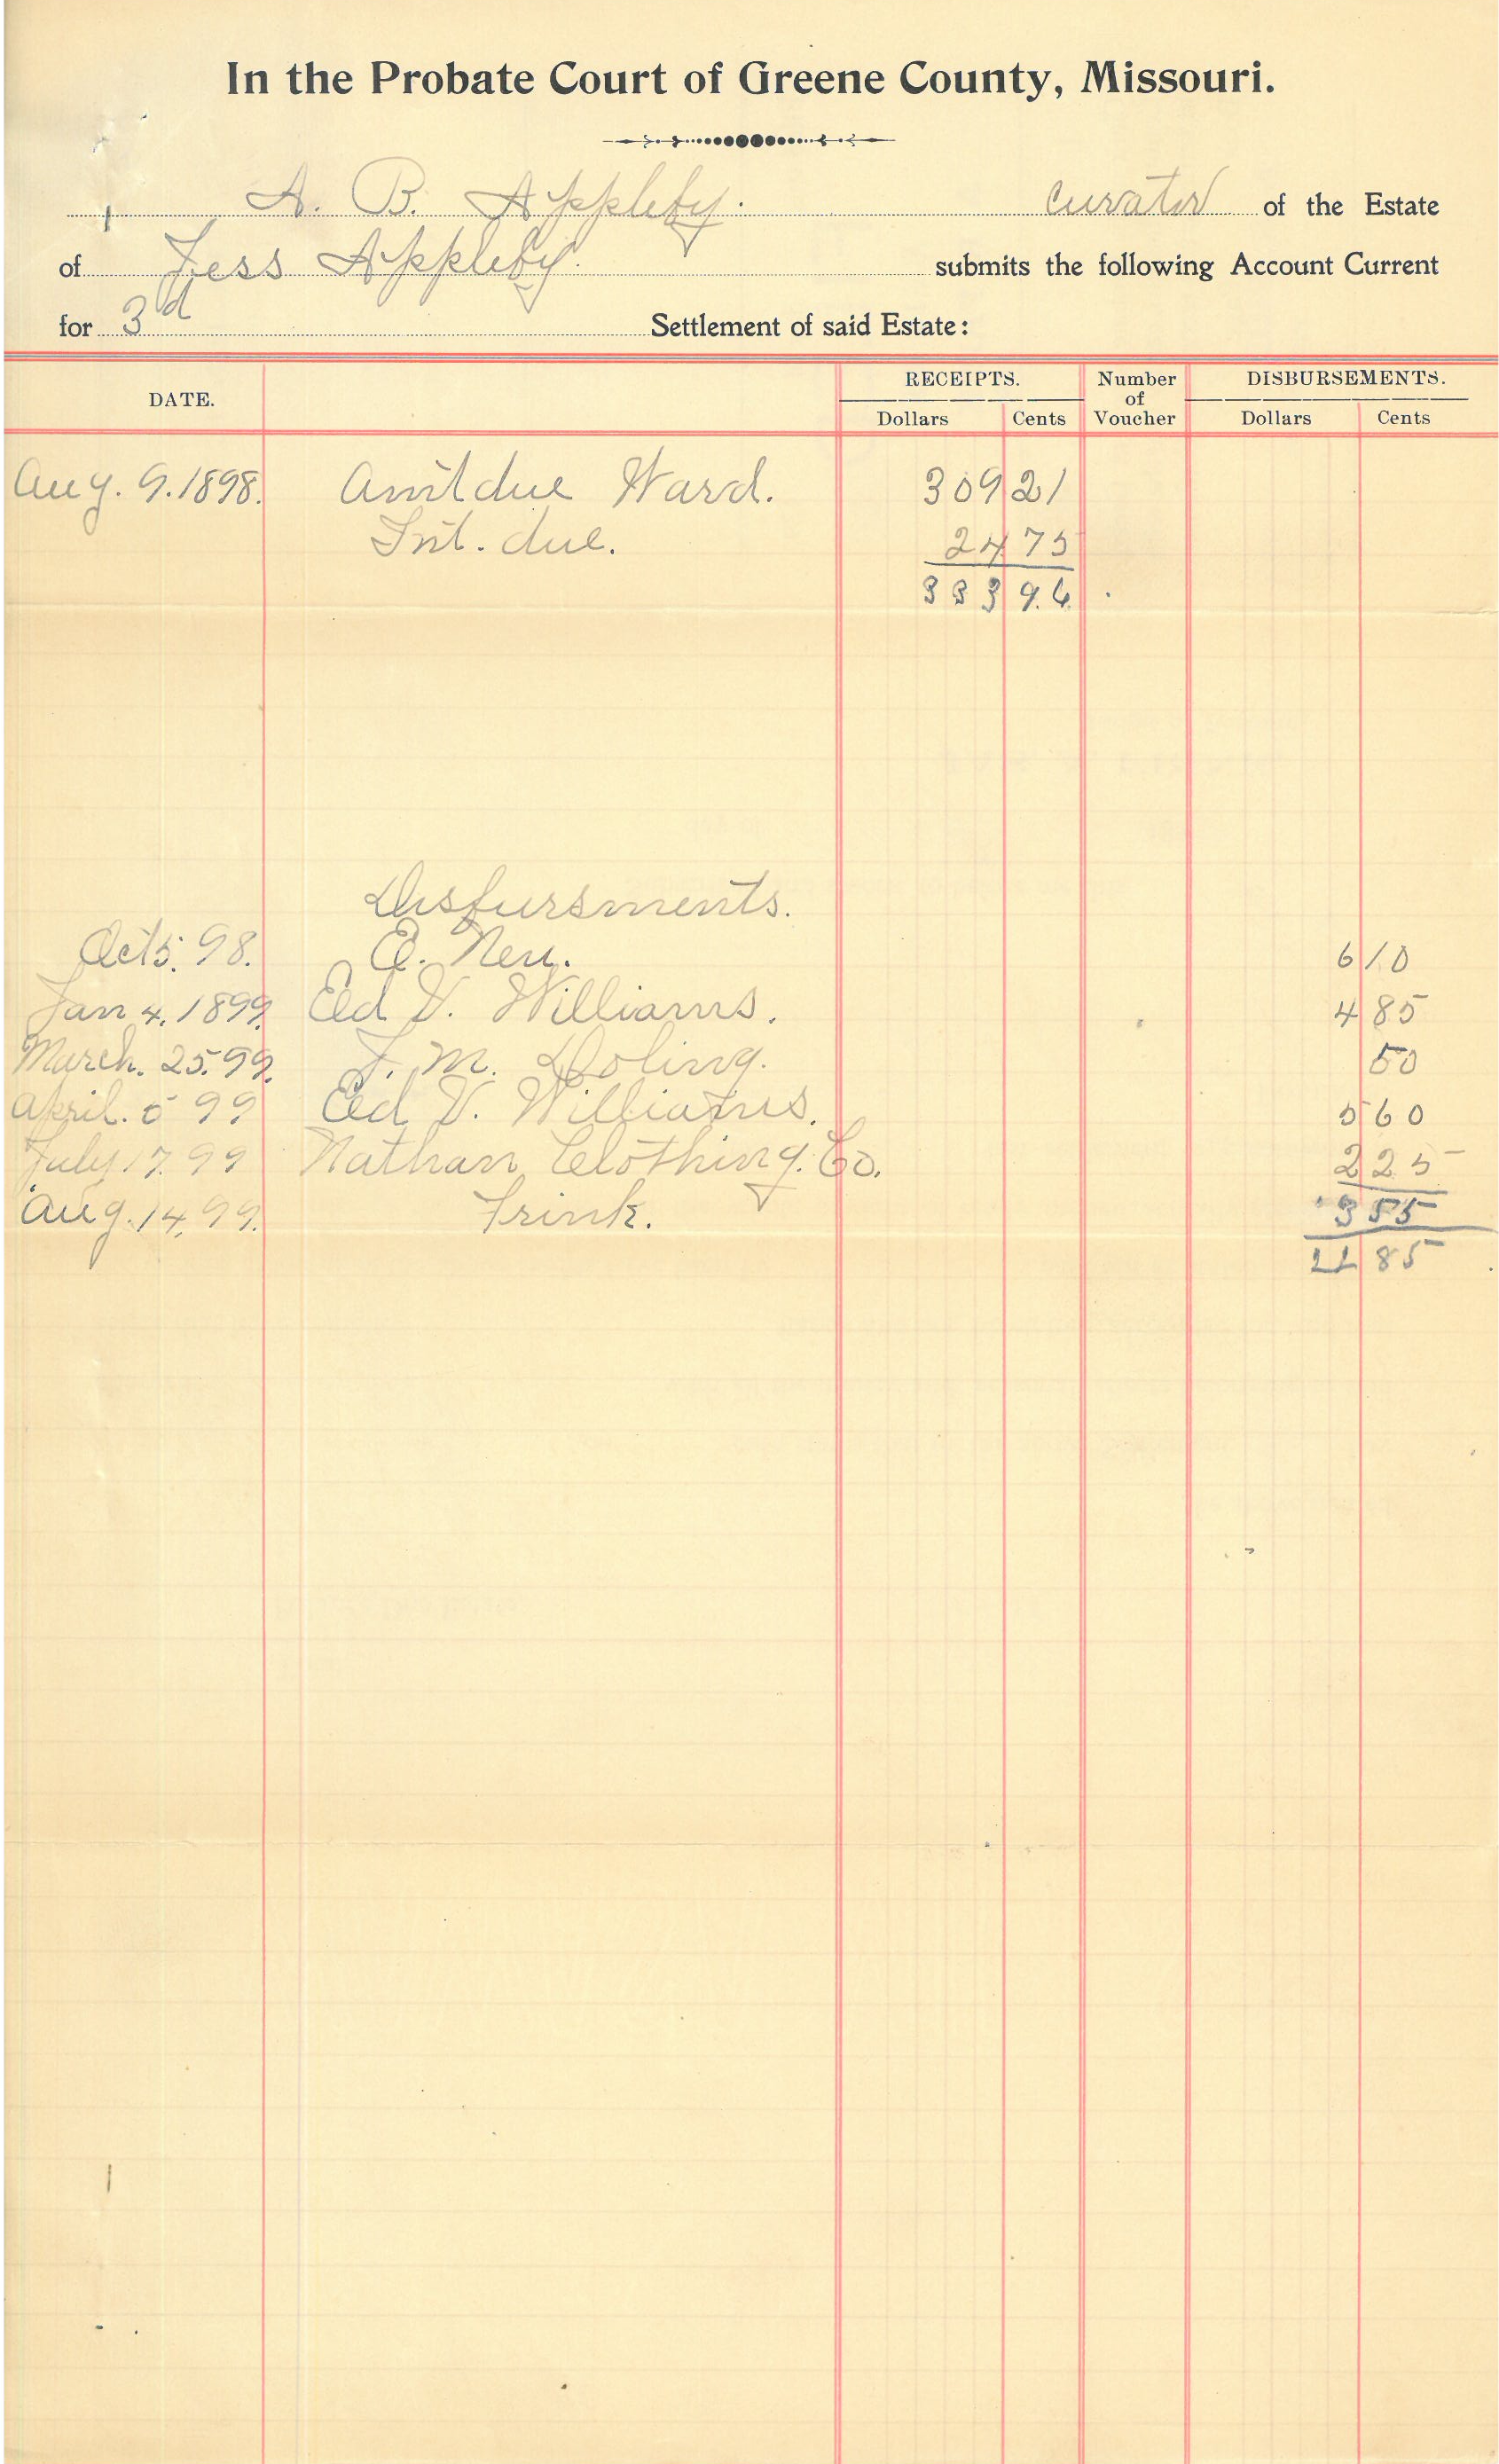 In the Probate Court of Greene County, Missouri.
A. B. Appleby. curator of the Estate
of Jess Appleby. submits the following Account Current
for 3d Settlement of said Estate:
DATE. RECEIPTS. Number of Voucher DISBURSEMENTS.
Dollars Cents Dollars Cents
Aug. 9. 1898. Amt due Ward. 309 21
Int. due. 24 75
333 96
Disbursments.
Oct 5. 98. 6 10
Jan 4. 1899. Ed V. Williams. 4 85
March. 25. 99. J. M. Doling. 50
April. 5 99 Ed V. Williams. 5 60
July 17. 99 Nathan Clothing. Co. 2 25
Aug. 14, 99. Trink. 3 55
85